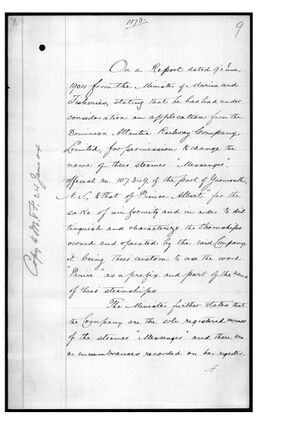 1173
9
On a Report dated 9 June,
1904 from the Minister of Marine and
Fisheries, stating that he has had under
consideration an application from the
Dominion Atlantic Railway Company,
Limited, for permission to change the
name of their steamer "Messenger",
official no. 107,319, of the port of Yarmouth,
N.S., to that of "Prince Albert" for the
sake of uniformity and in order to dis
tinguish and characterize the steamships
owned and operated by the said Company
it being their custom to use the word
"Prince" as a prefix and part of the name
of their steamships.
The Minister further states that
the Company are the sole registered owners
of the steamer "Messenger" and there are
no encumbrances recorded on her register.
Copy to M & F. 24 June 04